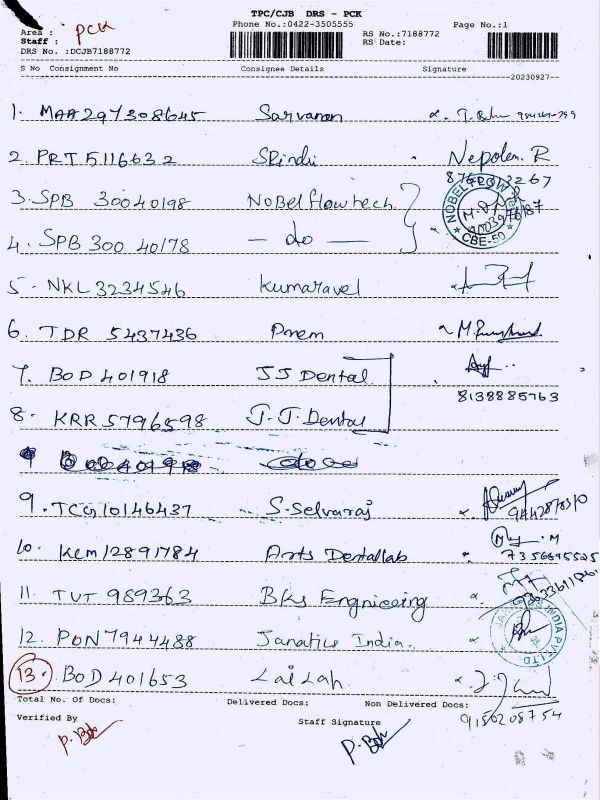 TPC/CJB DRS - PCK
Phone No.:0422-3505555 Page No.:1
Area : PCK
Staff :
DRS No. :DCJB7188772
RS No.:7188772
RS Date:
S No Consignment No Consignee Details Signature
20230927
1. MAA297308645 Sarvanan
2. PRT 5116632 SRindi Nepolen. R
3. SPB 30040198 Nobel flowtech.
NOBEL FLOW
CBE-50
4. SPB 300 40178 - do -
5. NKL 3234546 Kumaravel
6. TDR 5437436 Prem
7. BOD 401918 JJ Dental
8138885763
8. KRR 5796598 J.J. Dental
9. TCG 10146437 S. Selvaraj
10. KCM 12891784 Arts Dentallab M
7356695525
11. TUT 989363 BKs Engnieering
12. PON 7944488 Janatics India.
INDIA PVT LTD
13. BOD 401653 Lai Lah.
9150208754
Total No. Of Docs: Delivered Docs: Non Delivered Docs:
Verified By Staff Signature